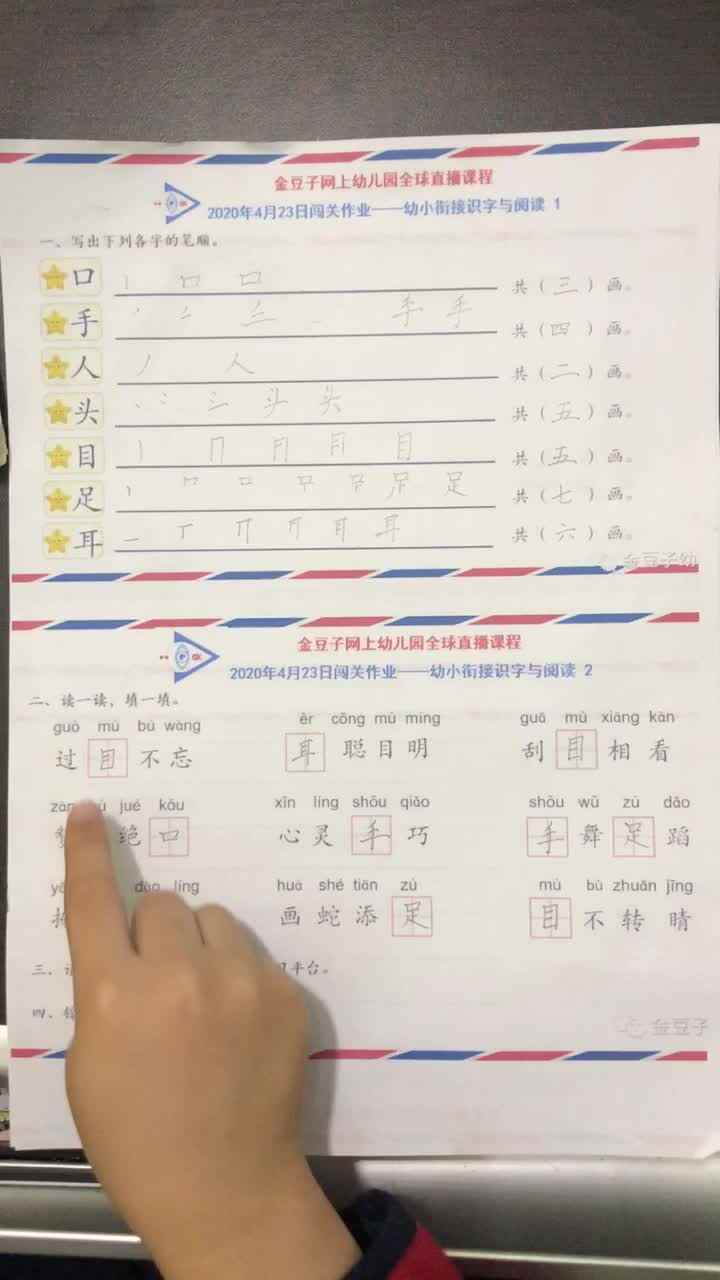 金豆子网上幼儿园全球直播课程
2020年4月23日闯关作业——幼小衔接识字与阅读 1
一、写出下列各字的笔顺。
口 丨 口 共（三）画。
手 手 手 共（四 ）画。
人 丿 人 共（二）画。
头 头 头 共（五）画。
目 丨 目 共（五）画。
足 丨 足 共（七）画。
耳 一 耳 共（六）画。
金豆子幼
金豆子网上幼儿园全球直播课程
2020年4月23日闯关作业——幼小衔接识字与阅读 2
二、读一读，填一填。
guò mù bú wàng ěr cōng mù míng guā mù xiāng kàn
过 目 不 忘 耳 聪 目 明 刮 目 相 看
jué kǒu xīn líng shǒu qiǎo shǒu wǔ zú dǎo
绝 口 心 灵 手 巧 手 舞 足 蹈
líng huà shé tiān zú mù bù zhuǎn jīng
画 蛇 添 足 目 不 转 睛
三、 平台。
四、
金豆子